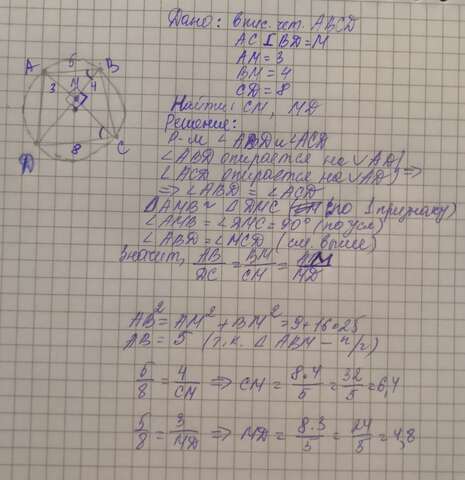 Дано: впис. чет. ABCD
AC ⊥ BD = M
AM = 3
BM = 4
CD = 8
Найти: CM, MD
Решение:
Р-м ∠ABD и ∠ACD
∠ABD опирается на ◡AD
∠ACD опирается на ◡AD ⇒
⇒ ∠ABD = ∠ACD
△AMB ~ △DMC (по 1 признаку)
∠AMB = ∠DMC = 90° (по усл)
∠ABD = ∠MCD (см. выше)
Значит, AB/DC = BM/CM = AM/MD
A B C D M
5 3 4 8
AB² = AM² + BM² = 9 + 16 = 25
AB = 5 (т.к. △ABM – п/у)
5/8 = 4/CM ⇒ CM = 8·4/5 = 32/5 = 6,4
5/8 = 3/MD ⇒ MD = 8·3/5 = 24/5 = 4,8